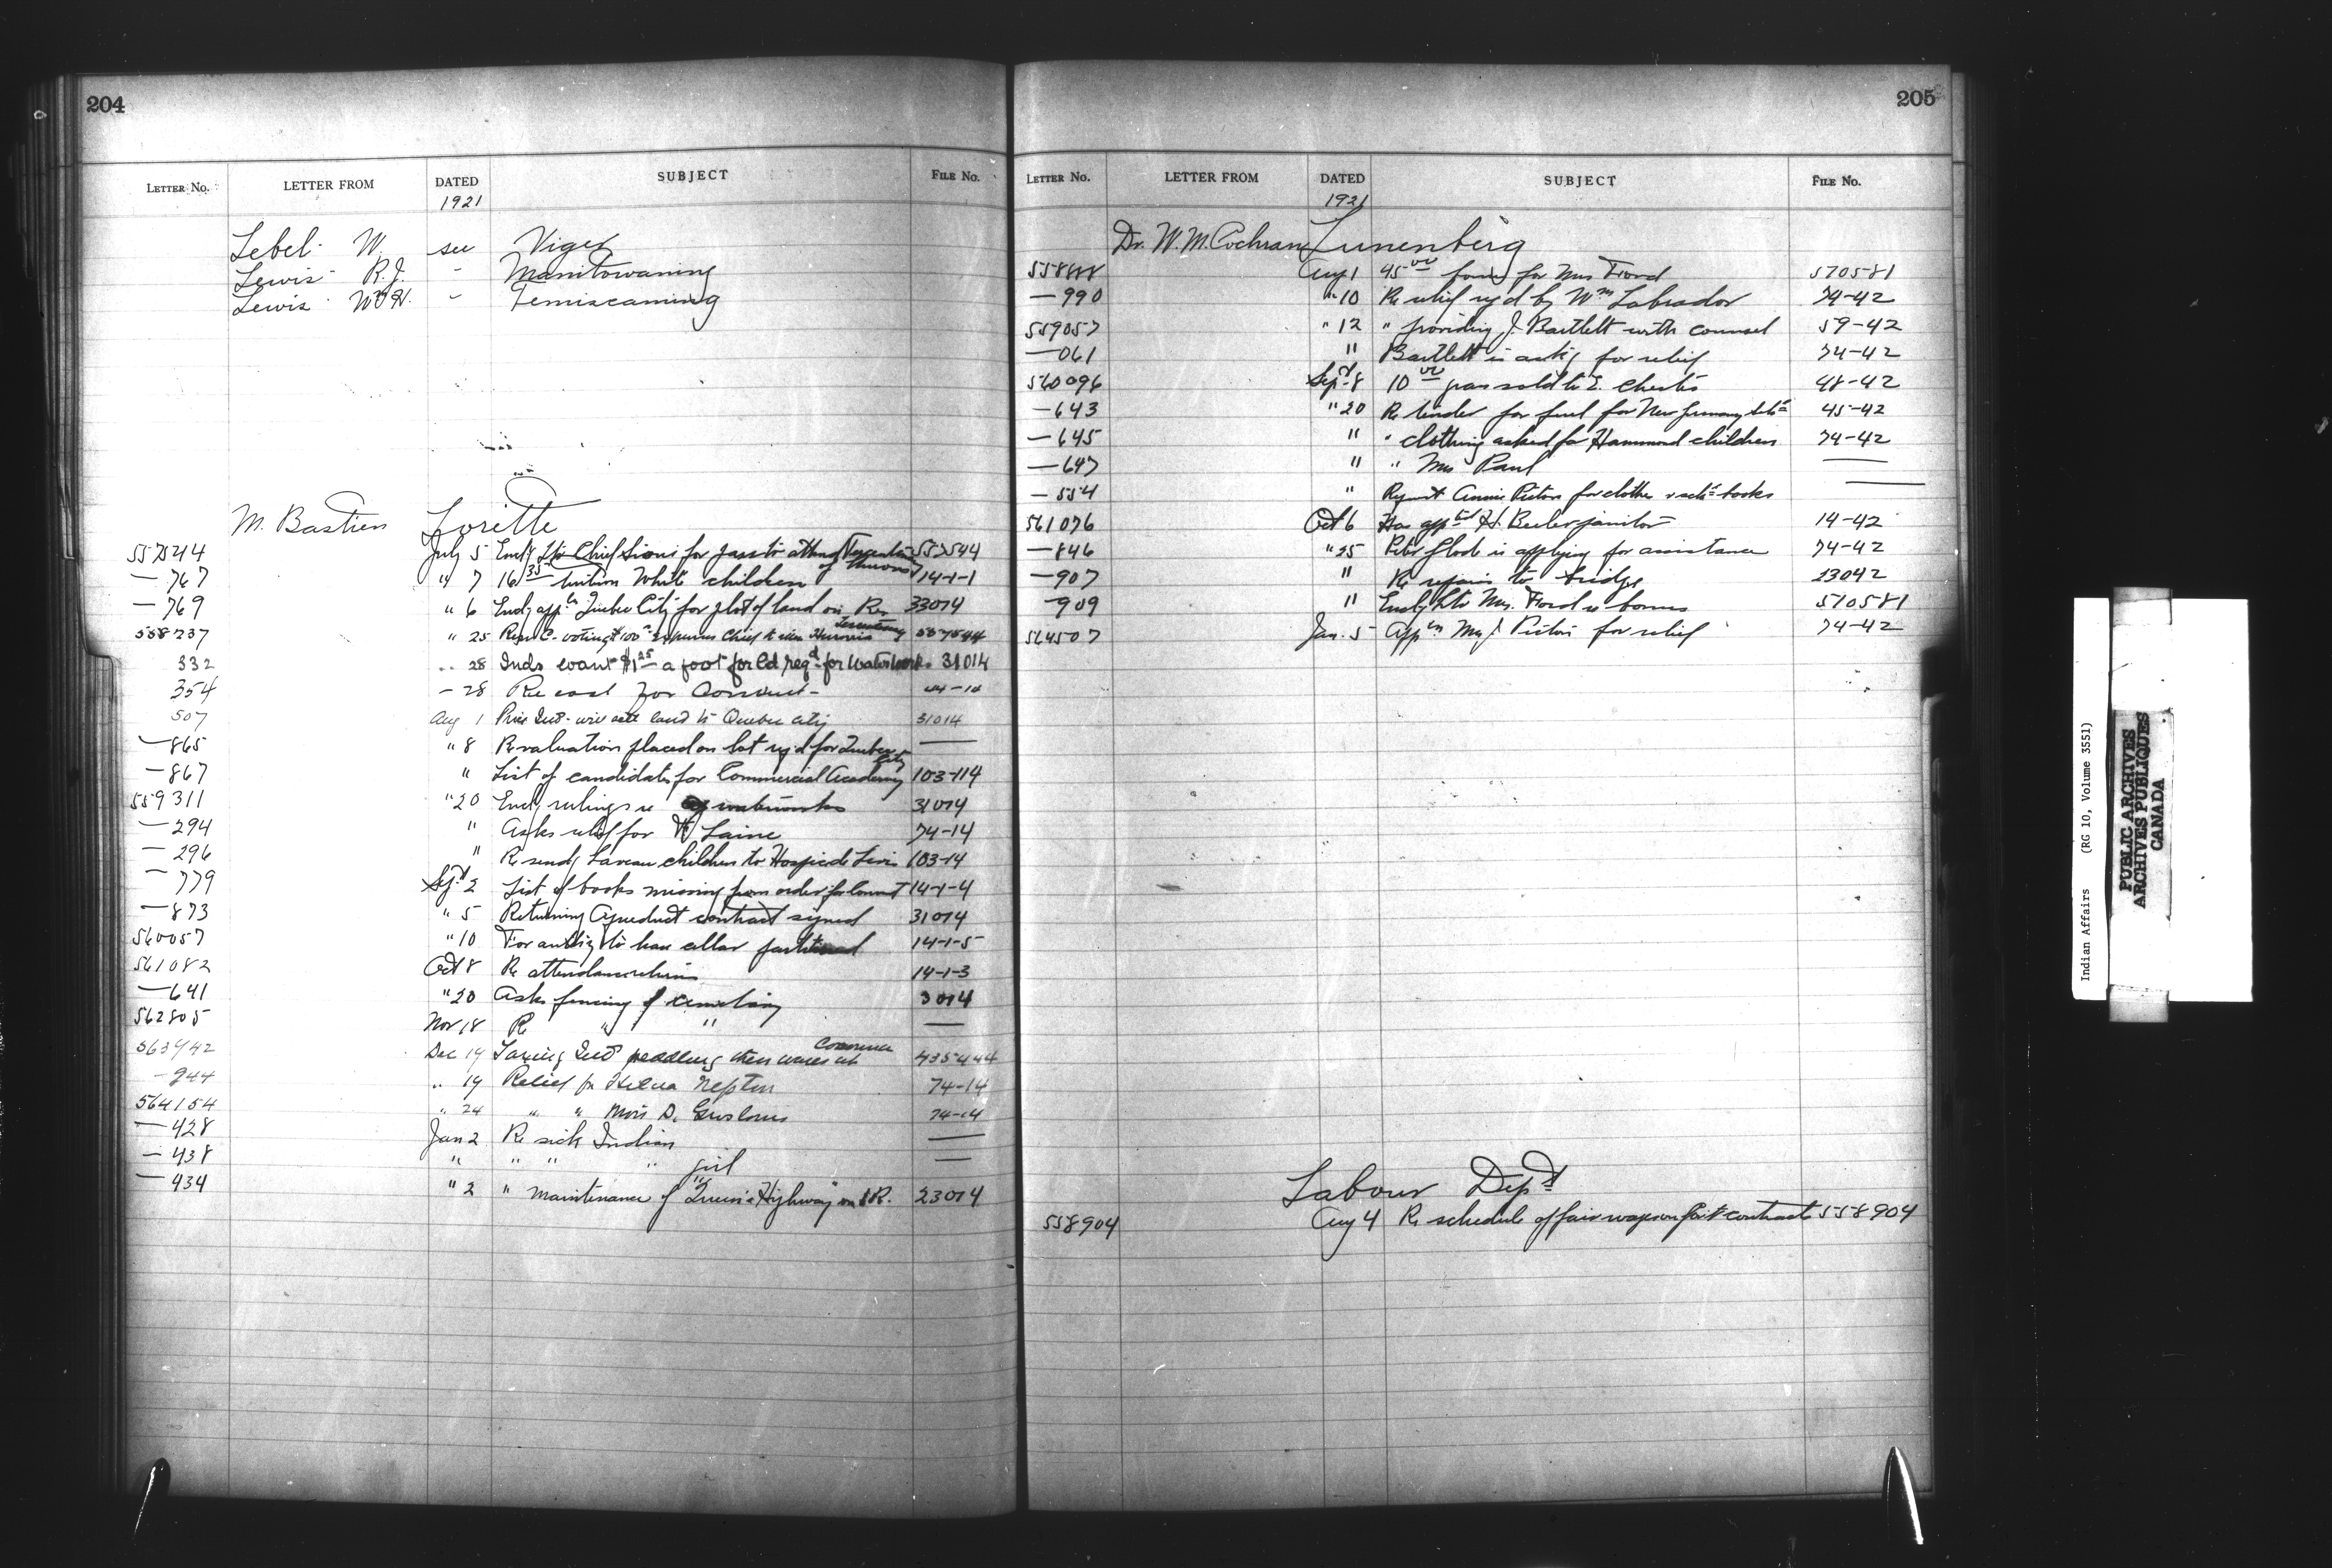 204
LETTER No. LETTER FROM DATED SUBJECT FILE No.
1921
Lebel W. see Viger
Lewis R.J. - Manitowaning
Lewis Wm H. - Temiscaming
M. Bastien Lorette
557544 July 5 Encl'g Chief Sioui for pass to attend of Hurons 557544
— 767 " 7 16 35 tuition White children 14-1-1
— 769 " 6 Encl'g app'n Quebec City for plot of land on Res 33014
558237 " 25 voting $100 expenses Chief Hurons 557544
332 " 28 Inds want $1 25 a foot for ld req'd for Waterworks 31014
354 - 28 Re cost for 44-14
507 Aug 1 Price Inds will sell land to Quebec City 31014
— 865 " 8 Re valuation placed on lot req'd for Quebec City —
— 867 " List of candidates for Commercial Academy 103-114
559311 " 20 Encl'g rulings re waterworks 31014
— 294 " Asks relief for Laine 74-14
— 296 " Re send'g children to Hospice de Levis 103-14
— 779 Sept 2 List of books missing from order for Convent 14-1-4
— 873 " 5 Returning Aqueduct contract signed 31014
560057 " 10 For auth'y to have cellar 14-1-5
561082 Oct 8 Re attendance returns 14-1-3
— 641 " 20 Asks fencing of cemetery 3014
562805 Nov 18 Re " " —
563942 Dec 19 Inds peddling their wares at 435444
— 944 " 19 Relief for Nepton 74-14
564154 " 24 " " D. 74-14
— 428 Jan 2 Re sick Indian —
— 438 " " " " girl —
— 434 " 2 " Maintenance of "Queen's Highway" on I.R. 23014
205
LETTER No. LETTER FROM DATED SUBJECT FILE No.
1921
Dr. W. M. Cochran Lunenberg
558888 Aug 1 45 00 for Mrs Ford 570581
— 990 " 10 Re relief req'd by Wm Labrador 74-42
559057 " 12 " providing J. Bartlett with counsel 59-42
— 061 " Bartlett is ask'g for relief 74-42
560096 Sept 8 10 00 grass sold to E. 48-42
— 643 " 20 Re tender for fuel for New Germany 45-42
— 645 " " clothing asked for Hammond children 74-42
— 647 " " Mrs Paul —
— 554 " Request Annie Pictou for clothes & sch books —
561076 Oct 6 Has app'ted H. janitor 14-42
— 846 " 25 Peter Glode is applying for assistance 74-42
— 907 " Re repairs to bridge 23042
— 909 " Encl'g ltr Mrs. Ford re bonus 510581
564507 Jan. 5 App'n Mrs J. Pictou for relief 74-42
Labour Dept
558904 Aug 4 Re schedule of fair wages on contracts 558904
Indian Affairs (RG 10, Volume 3551)
PUBLIC ARCHIVES
ARCHIVES PUBLIQUES
CANADA